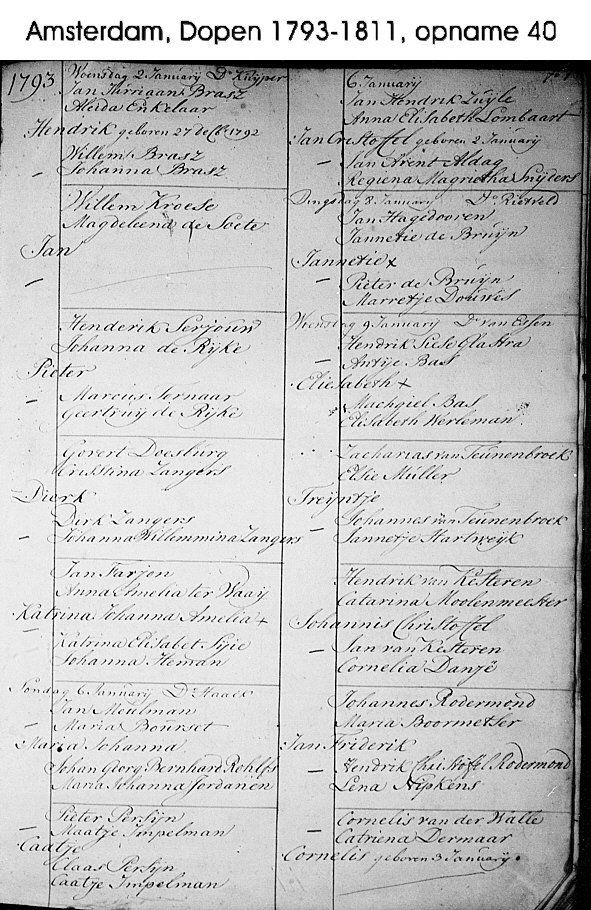 Amsterdam, Dopen 1793-1811, opname 40
1793
Woensdag 2 January Ds Kuijper
Jan Harmans Brasz
Aleida Enkelaar
Hendrik geboren 27 decbr 1792
Willem Brasz
Johanna Brasz
Willem Kroese
Magdeleena de Soete
Jan
Henderik Serjoun
Johanna de Rijke
Pieter
Marcus Ternaar
Geertruy de Rijke
Govert Doesburg
Cristina Zangers
Dierk
Dirk Zangers
Johanna Willemmina Zangers
Jan Farjon
Anna Amelia ter Waaij
Katrina Johanna Amelia +
Katrina Elisabet Sijie
Johanna Heman
Sondag 6 January Ds Haack
Jan Meulman
Maria Bourset
Maria Johanna
Johan Georg Bernhard Rohlfs
Maria Johanna Jordanen
Pieter Persijn
Maatje Impelman
Caatje
Claas Persijn
Caatje Impelman
6 January
Jan Hendrik Zuyle
Anna Elisabeth Lombaart
Jan Cristoffel geboren 2 January
Jan Arent Aldag
Regiena Magrietha Snijders
Dingsdag 8 January Ds Rietveld
Jan Hagedooren
Jannetie de Bruyn
Jannetie x
Pieter de Bruyn
Marretje Douwes
Woensdag 9 January Ds van Essen
Hendrik Siese Glastra
Antije Bas
Eliesabeth +
Machgiel Bas
Elisabeth Werleman
Zacharias van Teunenbroek
Elsie Muller
Treijntje
Johannes van Teunenbroek
Jannetje Hartweijk
Hendrik van Kesteren
Catarina Moolenmeester
Johannis Christoffel
Jan van Kesteren
Cornelia Danjé
Johannes Rodermond
Maria Boormetser
Jan Friderik
Hendrik Christoffel Rodermond
Lena Nipkens
Cornelis van der Walle
Catriena Dermaar
Cornelis geboren 3 January